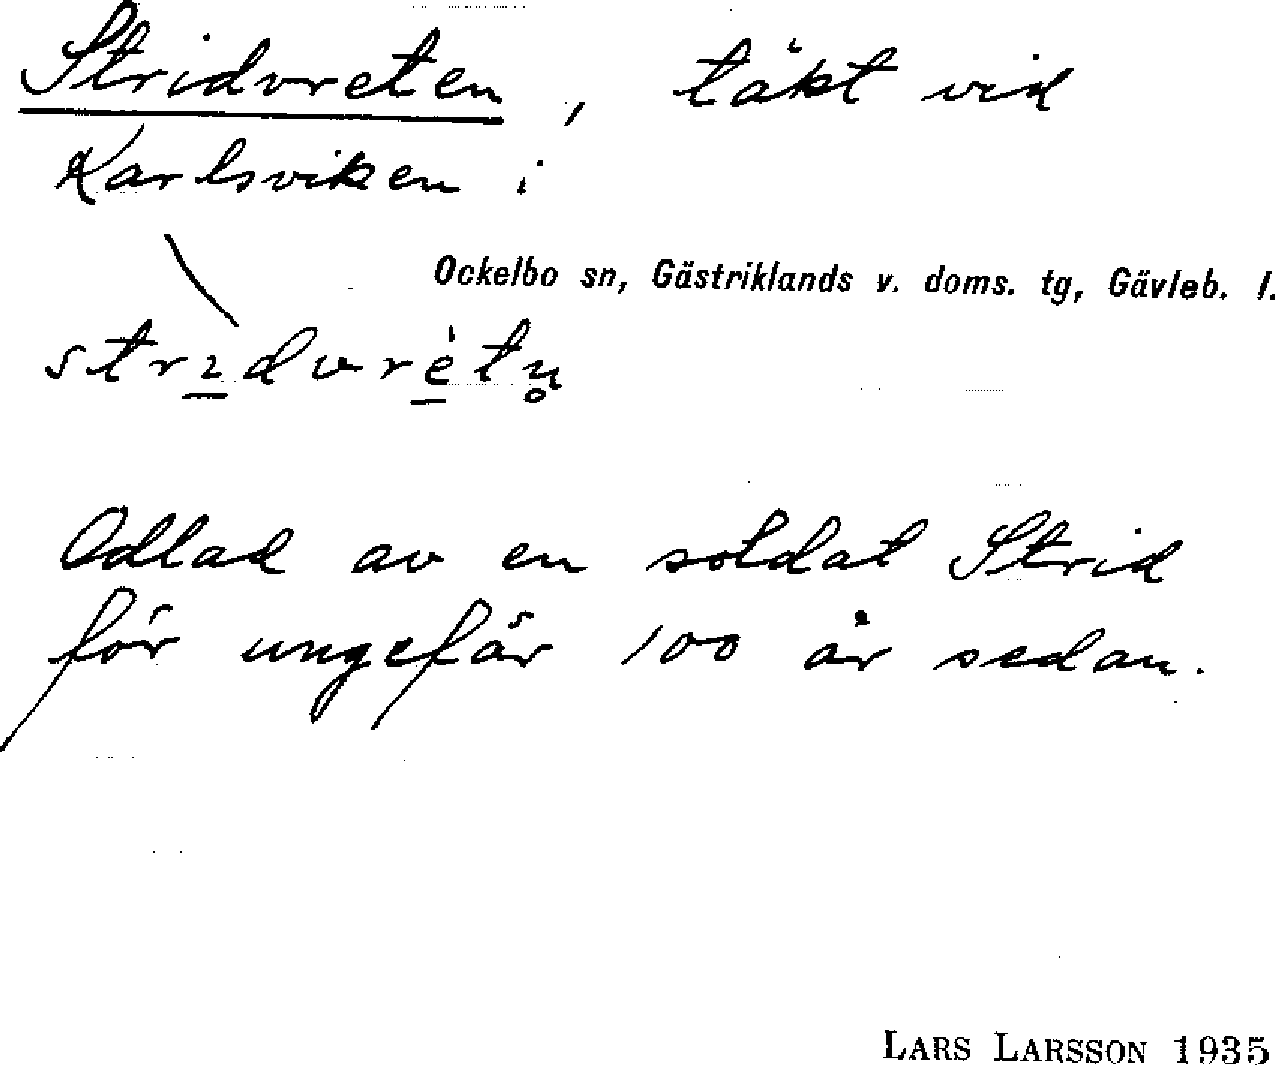 Stridvreten, täkt vid
Karlsviken i
Ockelbo sn, Gästriklands v. doms. tg, Gävleb. l.
strɩ̱dvrè̱tn̥
Odlad av en soldat Strid
för ungefär 100 år sedan.
LARS LARSSON 1935